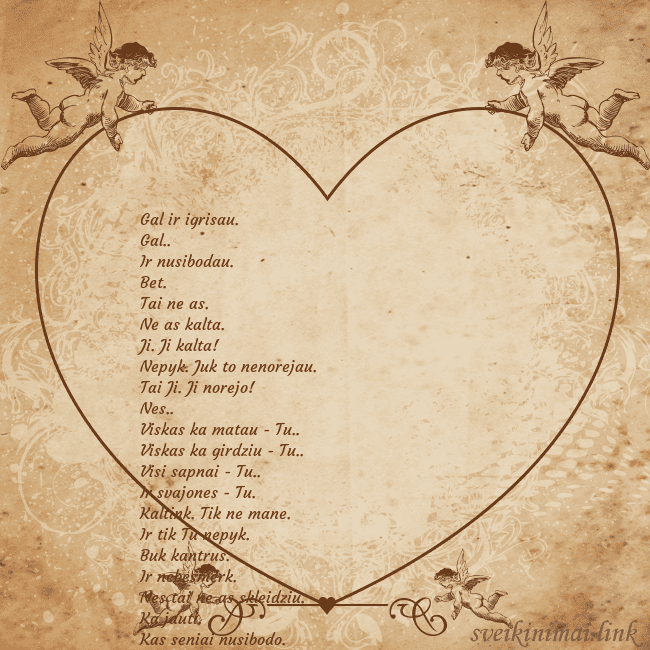 Gal ir igrisau.
Gal..
Ir nusibodau.
Bet.
Tai ne as.
Ne as kalta.
Ji. Ji kalta!
Nepyk. Juk to nenorejau.
Tai Ji. Ji norejo!
Nes..
Viskas ka matau - Tu..
Viskas ka girdziu - Tu..
Visi sapnai - Tu..
Ir svajones - Tu.
Kaltink. Tik ne mane.
Ir tik Tu nepyk.
Buk kantrus.
Ir nebesmerk.
Nes tai ne as skleidziu.
Ka jauti.
Kas seniai nusibodo.
sveikinimai.link